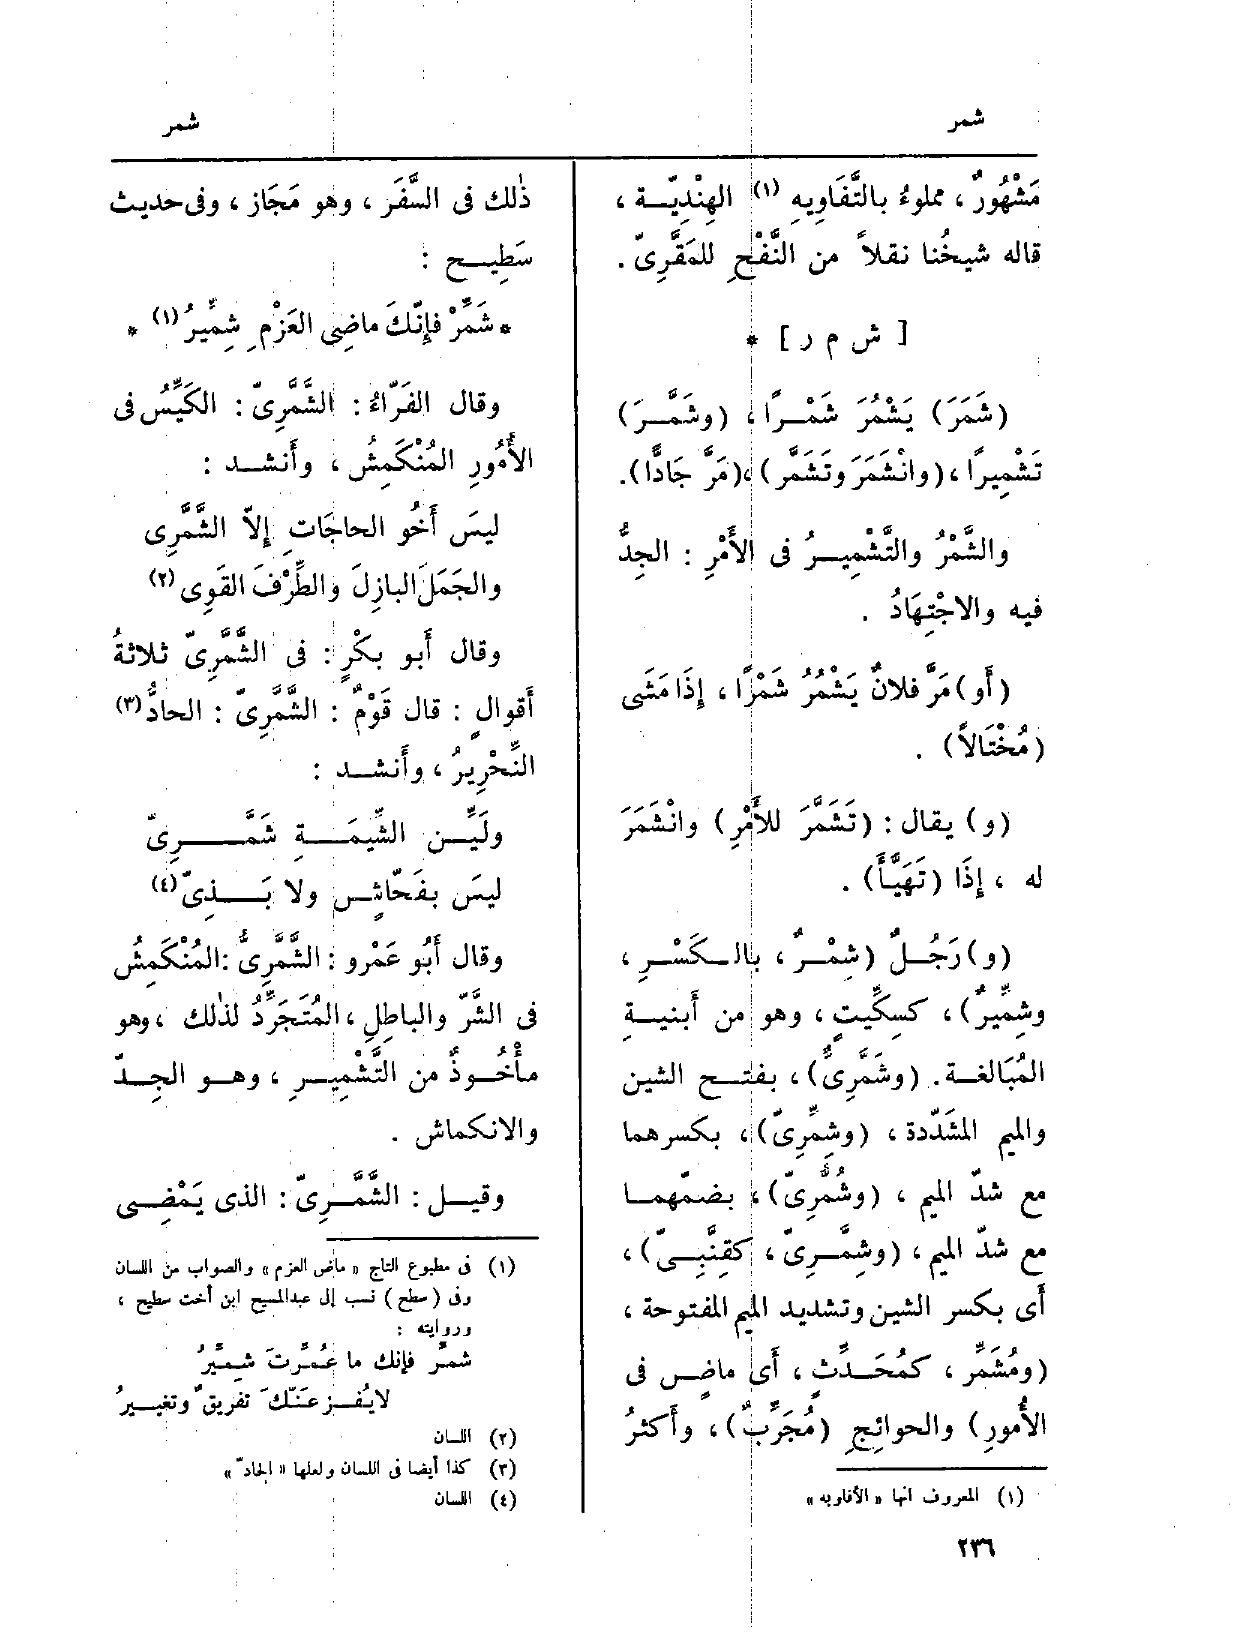 شمر
شمر
مَشْهُورٌ ، مملوءٌ بالتَّفَاوِيهِ (١) الهِنْدِيّـة ،
قاله شيخُنا نقلاً من النَّفْحِ للمَقَّرِىّ .
[ ش م ر ] *
(شَمَرَ) يَشْمُرُ شَمْـرًا ، (وشَمَّـرَ)
تَشْمِيرًا ، (وانْشَمَرَ وتَشَمَّر) ، (مَرَّ جَادًّا).
والشَّمْرُ والتَّشْمِيـرُ فى الأَمْرِ : الجِدُّ
فيه والاجْتِهَادُ .
(أَو) مَرَّ فلانٌ يَشْمُرُ شَمْرًا ، إِذَا مَشَى
(مُخْتَالاً) .
(و) يقال : (تَشَمَّرَ للأَمْرِ) وانْشَمَرَ
له ، إِذَا (تَهَيَّأَ) .
(و) رَجُـلٌ (شِمْـرٌ ، بالـكَسْـرِ ،
وشِمِّيرٌ) ، كسِكِّيتٍ ، وهو من أَبنيـةِ
المُبَالغـة . (وشَمَّرِىٌّ) ، بفتـح الشين
والميم المشَدّدة ، (وشِمِّرِىّ) ، بكسرهما
مع شدّ الميم ، (وشُمُّرِىّ) ، بضمّهمـا
مع شدّ الميم ، (وشِمَّـرِىّ ، كقِنَّبِـىّ) ،
أَى بكسر الشين وتشديد الميم المفتوحة ،
(ومُشَمِّر ، كمُحَـدِّث ، أَى ماضٍ فى
الأُمورِ) والحوائجِ (مُجَرِّبٌ) ، وأَكثرُ
(١) المعروف انها « الأفاويه »
٢٣٦
ذٰلك فى السَّفَر ، وهو مَجَاز ، وفى حديث
سَطِيـح :
* شَمِّرْ فإِنّكَ ماضِى العَزْمِ شِمِّيرُ (١) *
وقال الفَرّاءُ : الشَّمَّرِىّ : الكَيِّسُ فى
الأُمُورِ المُنْكَمِشُ ، وأَنشـد :
ليسَ أَخُو الحاجَاتِ إِلاّ الشَّمَّرِى
والجَمَلَ البازِلَ والطِّرْفَ القَوِى (٢)
وقال أَبو بكْرٍ : فى الشَّمَّرِىّ ثلاثةُ
أَقوالٍ : قال قَوْمٌ : الشَّمَّرِىّ : الحادُّ (٣)
النِّحْرِيرُ ، وأَنشـد :
ولَيِّـن الشِّيمَــةِ شَمَّـــرِىّ
ليسَ بفَحّاشٍ ولا بَـــذِىّ (٤)
وقال أَبُو عَمْرو : الشَّمَّرِىُّ : المُنْكَمِشُ
فى الشَّرِّ والباطِلِ ، المُتَجَرِّدُ لذٰلك ، وهو
مأْخُـوذٌ من التَّشْمِيـر ، وهـو الجِـدّ
والانكماش .
وقيـل : الشَّمَّـرِىّ : الذى يَمْضِـى
(١) فى مطبوع التاج « ماض العزم » والصواب من اللسان
وفى (سطح) نسب إلى عبدالمسيح ابن أخت سطيح ،
وروايته :
شمِّر فإنك ما عُمِّرتَ شِمِّيرُ
لايُفـزِعَنّكَ تفريقٌ وتغييـرُ
(٢) اللسان
(٣) كذا أيضا فى اللسان ولعلها « الجادّ »
(٤) اللسان